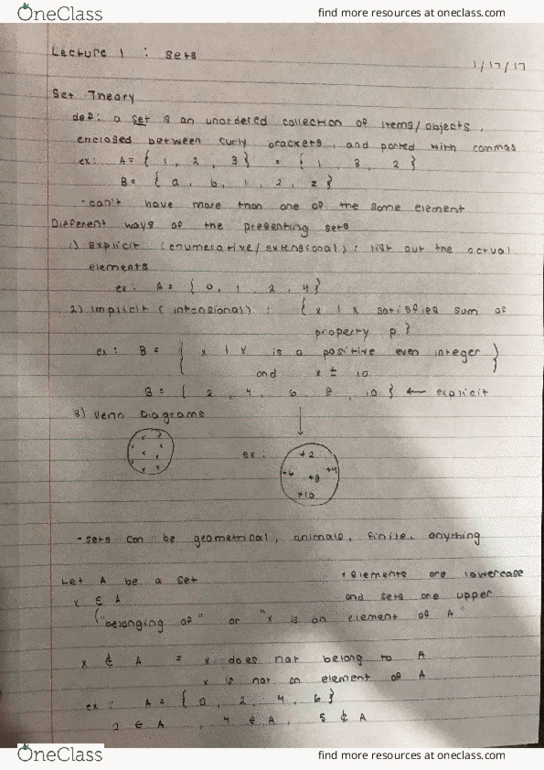 OneClass find more resources at oneclass.com
Lecture 1 : Sets 1/17/17
Set Theory
def: a set is an unordered collection of items/objects,
enclosed between curly brackets, and ported with commas
ex: A = { 1, 2, 3 } = { 1, 3, 2 }
B = { a, b, 1, 2, z }
· can't have more than one of the same element
Different ways of the presenting sets
1) Explicit (enumerative/extensional): list out the actual
elements
ex: A = { 0, 1, 2, 4 }
2) Implicit (intensional): { x | x satisfies sum of
property p }
ex: B = { x | x is a positive even integer
and x ≤ 10 }
B = { 2, 4, 6, 8, 10 } ← explicit
3) Venn Diagrams
ex: +2
+6 +8 +4
+10
- sets can be geometrical, animals, finite, anything
Let A be a set · elements are lowercase
x ∈ A and sets are upper
("belonging of" or "x is an element of A"
x ∉ A = x does not belong to A
x is not an element of A
ex: A = { 0, 2, 4, 6 }
2 ∈ A, 4 ∈ A, 5 ∉ A
OneClass find more resources at oneclass.com